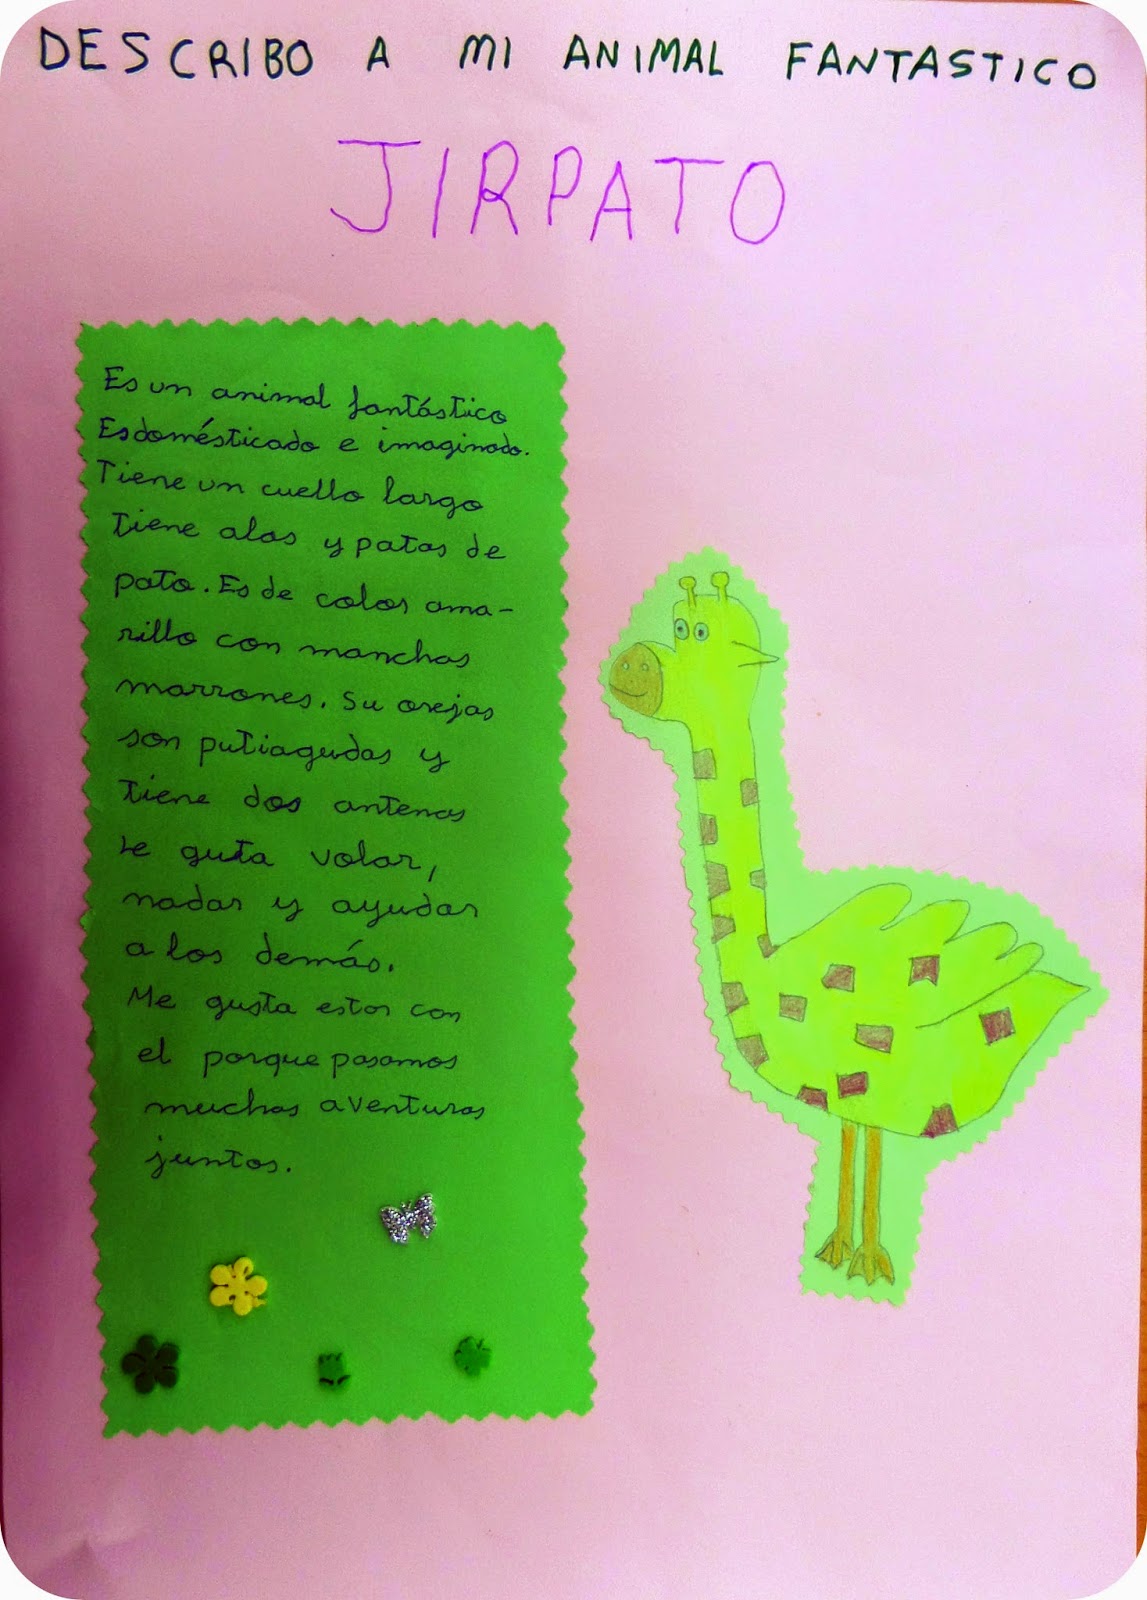 DESCRIBO A MI ANIMAL FANTASTICO
JIRPATO
Es un animal fantástico
Es domésticado e imaginado.
Tiene un cuello largo
tiene alas y patas de
pato. Es de color ama-
rillo con manchas
marrones. Su orejas
son putiagudas y
tiene dos antenas
Le guta volar,
nadar y ayudar
a los demás.
Me gusta estar con
el porque pasamos
muchas aventuras
juntos.